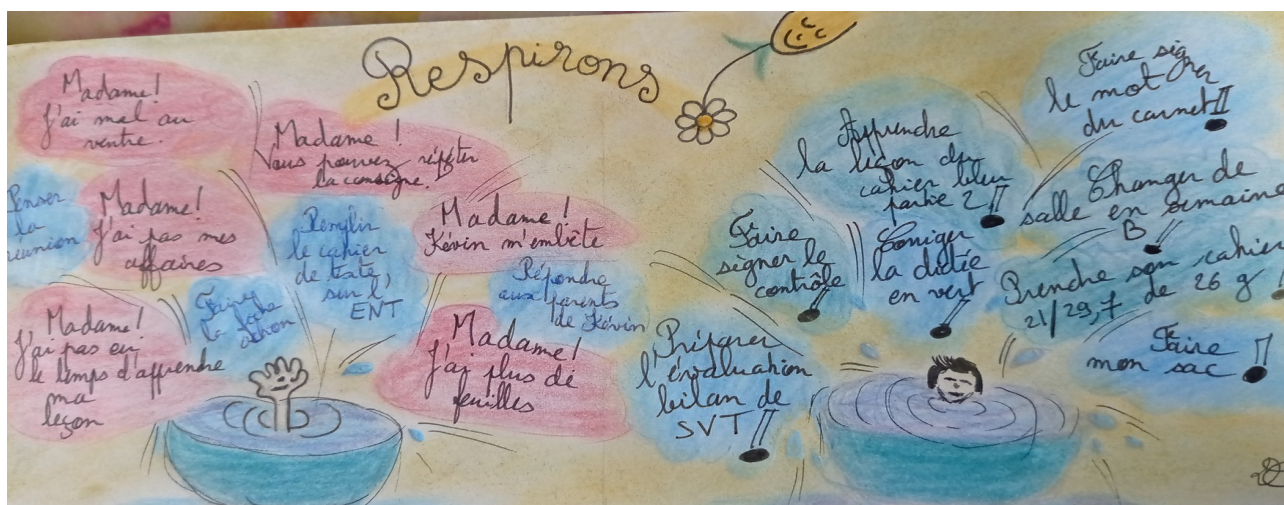 Respirons
Madame!
J'ai mal au
ventre.
Madame!
Vous pouvez répéter
la consigne.
Penser
la
réunion
Madame!
J'ai pas mes
affaires
Remplir
le cahier
de texte,
sur l'
ENT
Madame!
Kévin m'embête
Répondre
aux parents
de Kévin
Madame!
J'ai pas eu
le temps d'apprendre
ma
leçon
Faire
la
Madame!
J'ai plus de
feuilles
Apprendre
la leçon du
cahier bleu
partie 2!!
Faire signer
le mot
du carnet!!
Changer de
salle en semaine
B!
Faire
signer le
contrôle!
Corriger
la dictée
en vert!
Prendre son cahier
21/29,7 de 26 g!
Préparer
l'évaluation
bilan de
SVT!!
Faire
mon sac!!